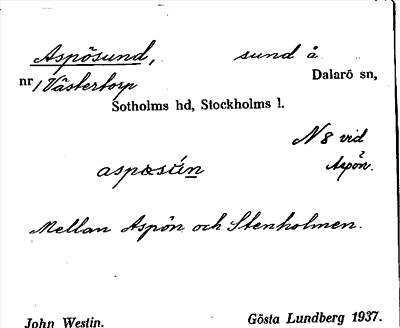 Aspösund, sund å
nr 1 Västertorp Dalarö sn,
Sotholms hd, Stockholms l.
N 8 vid
Aspön.
Mellan Aspön och Stenholmen.
John Westin. Gösta Lundberg 1937.